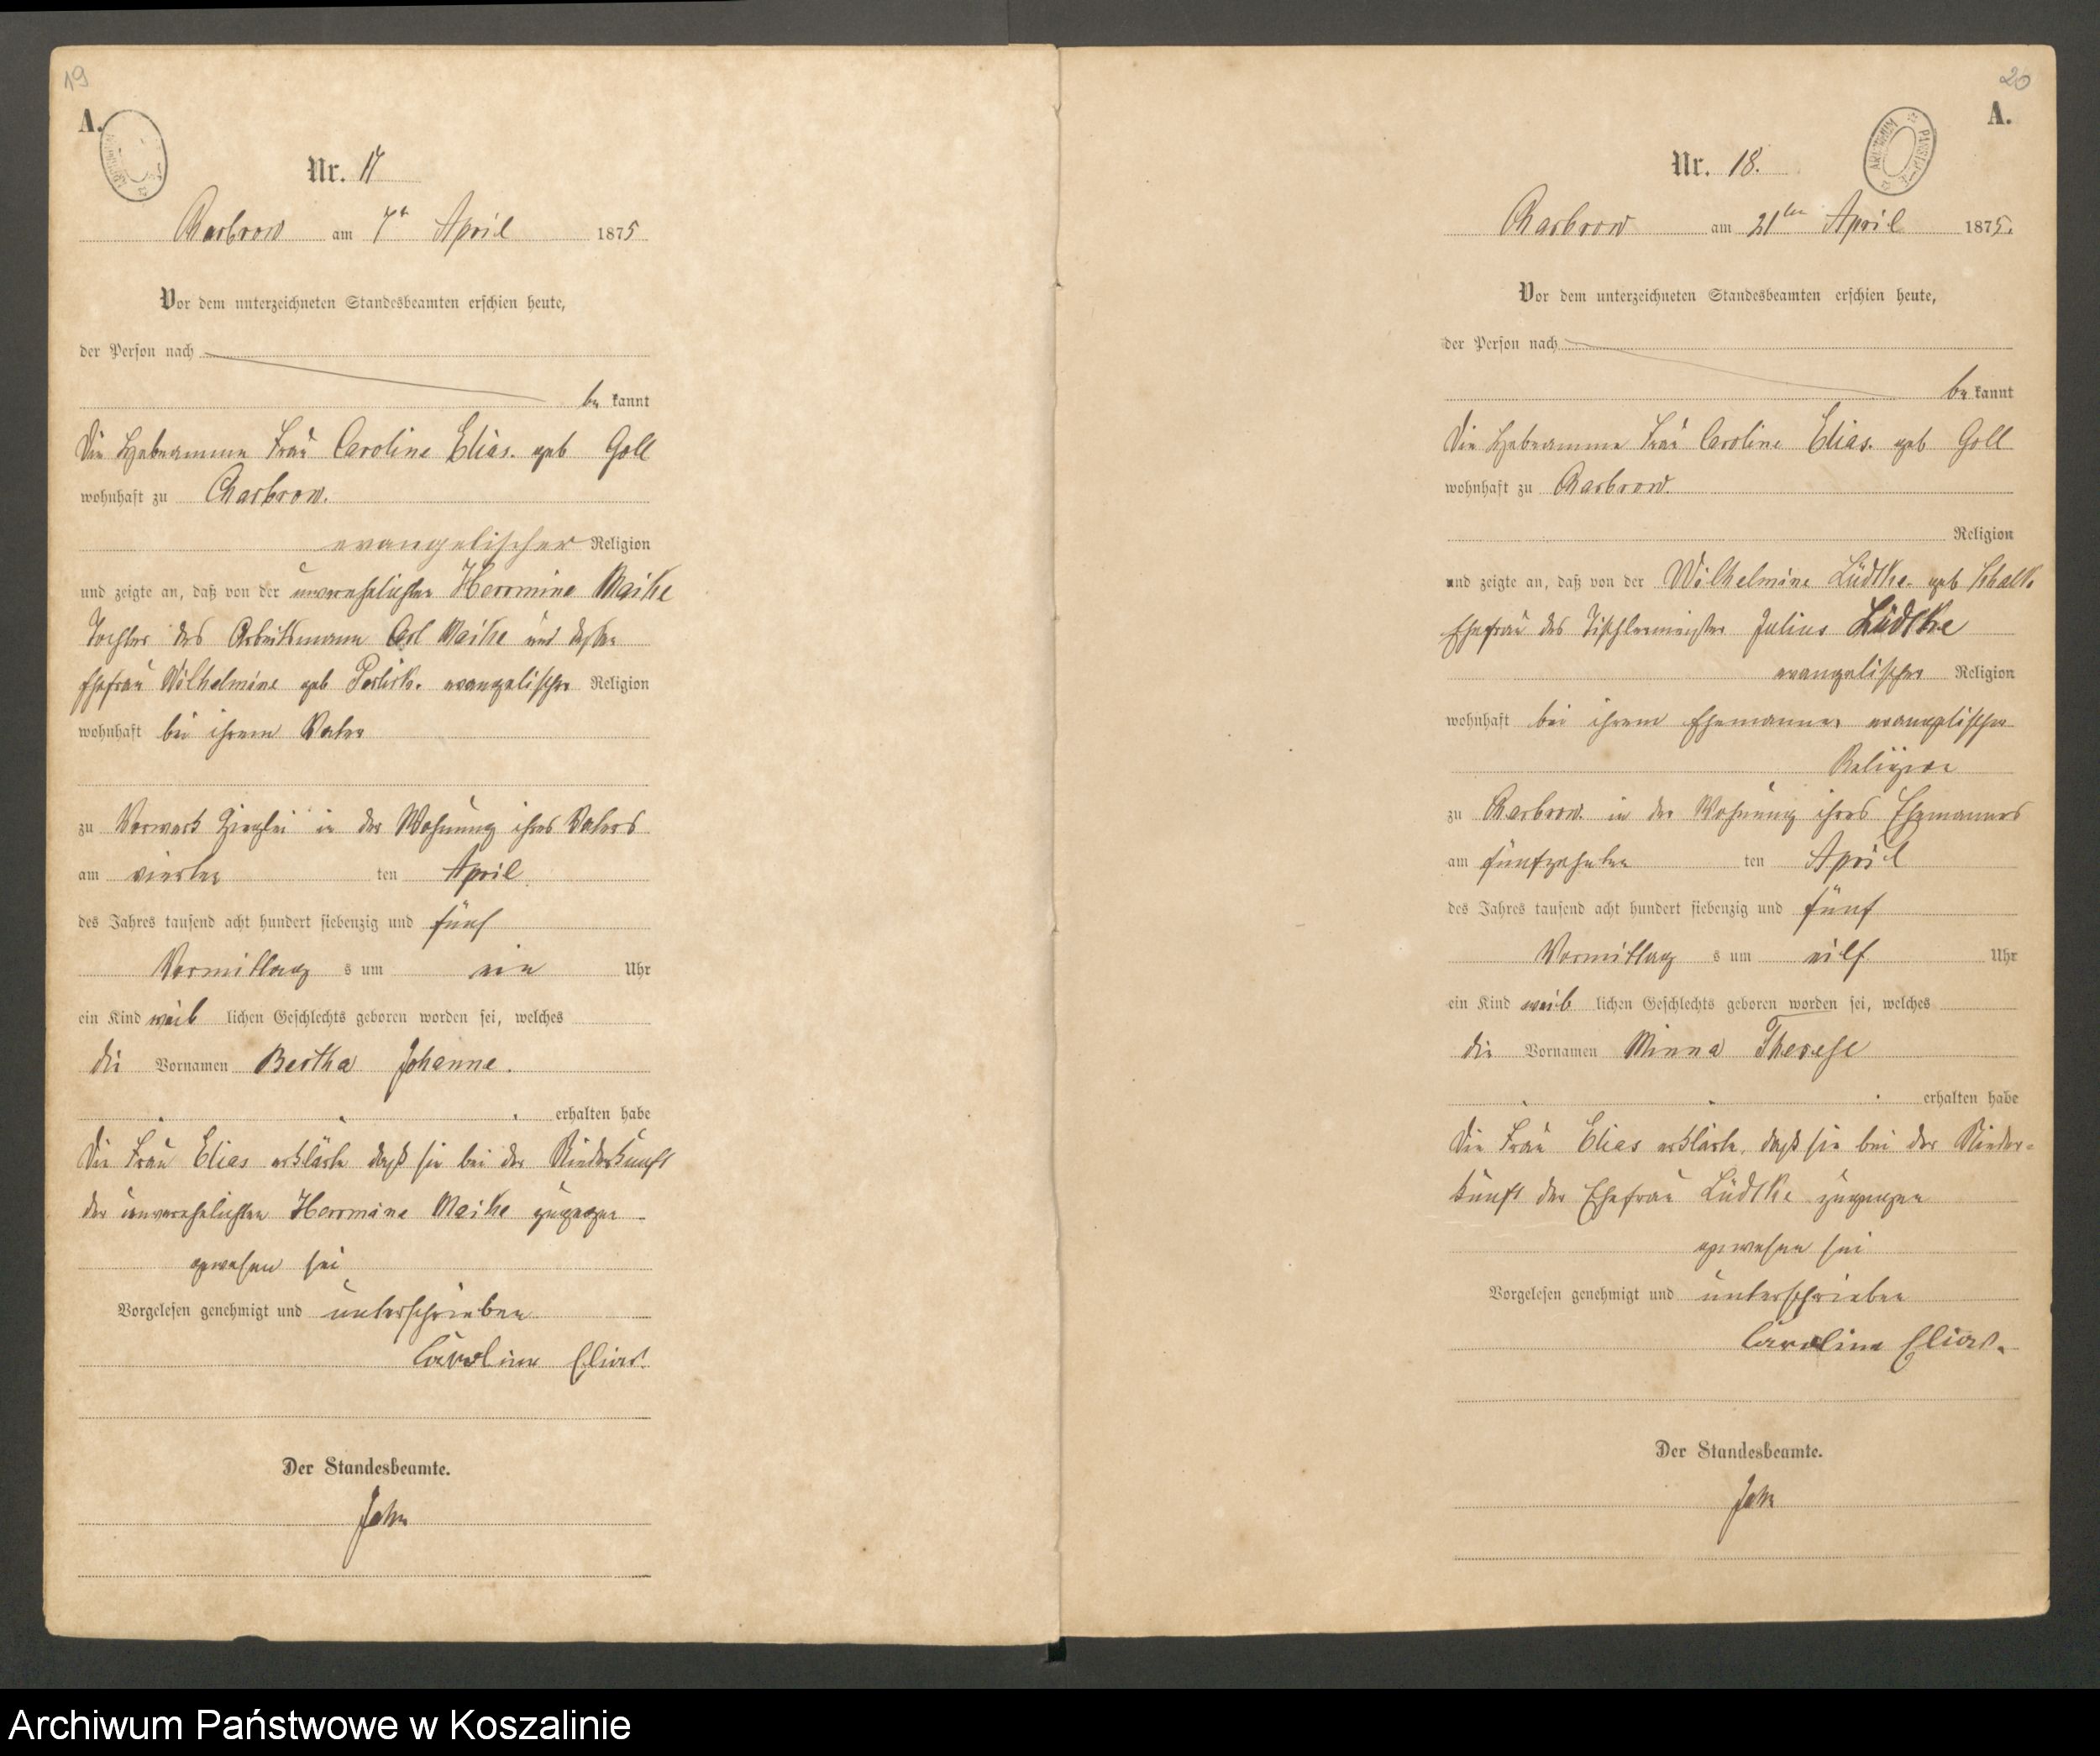 19
A.
Nr. 17
Charbrow am 7t April 1875
Vor dem unterzeichneten Standesbeamten erschien heute,
der Person nach
be kannt
Die Hebeamme Frau Caroline Elias. geb Goll
wohnhaft zu Charbrow.
evangelischer Religion
und zeigte an, daß von der unverehelichten Herrmine Maike
Tochter des Arbeitsmann Carl Maike und dessen
Ehefrau Wilhelmine geb evangelischer Religion
wohnhaft bei ihrem Vater
zu Vorwerk Ziegelei in der Wohnung ihres Vaters
am vierten ten April
des Jahres tausend acht hundert siebenzig und fünf
Vormittag s um ein Uhr
ein Kind weib lichen Geschlechts geboren worden sei, welches
die Vornamen Bertha Johanne.
erhalten habe
Die Frau Elias erklärte daß sie bei der Niederkunft
der unverehelichten Herrmine Maike zugegen
gewesen sei
Vorgelesen genehmigt und unterschrieben
Caroline Elias.
Der Standesbeamte.
Jahn
20
A.
ARCHIWUM PAŃSTW
Nr. 18.
Charbrow am 21ten April 1875.
Vor dem unterzeichneten Standesbeamten erschien heute,
der Person nach
be kannt
Die Hebeamme Frau Caroline Elias. geb Goll
wohnhaft zu Charbrow.
Religion
und zeigte an, daß von der Wilhelmine Lüdtke geb Schalk
Ehefrau des Tischlermeister Julius Lüdtke
evangelischer Religion
wohnhaft bei ihrem Ehemanne, evangelischer
Religion
zu Charbrow. in der Wohnung ihres Ehemannes
am fünfzehnten ten April
des Jahres tausend acht hundert siebenzig und fünf
Vormittag s um eilf Uhr
ein Kind weib lichen Geschlechts geboren worden sei, welches
die Vornamen Minna Therese
erhalten habe
Die Frau Elias erklärte, daß sie bei der Nieder-
kunft der Ehefrau Lüdtke zugegen
gewesen sei
Vorgelesen genehmigt und unterschrieben
Caroline Elias.
Der Standesbeamte.
Jahn
Archiwum Państwowe w Koszalinie